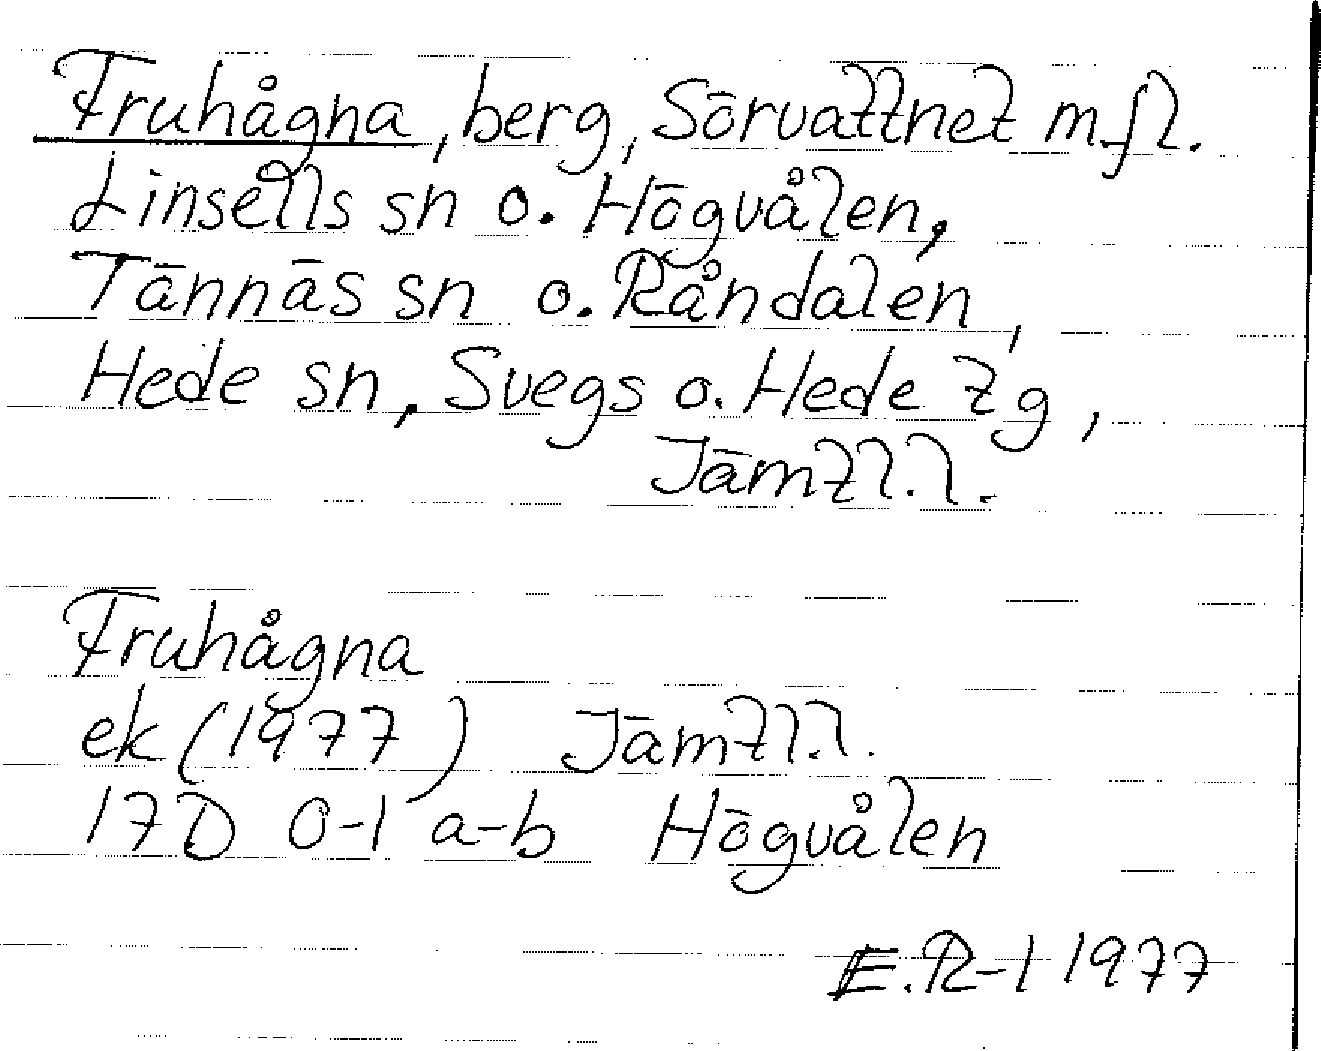 Fruhågna, berg, Sörvattnet m.fl.
Linsells sn o. Högvålen,
Tännäs sn o. Råndalen,
Hede sn, Svegs o. Hede tg,
Jämtl.l.
Fruhågna
ek (1977) Jämtl.l.
17D 0-1 a-b Högvålen
E.R-l 1977